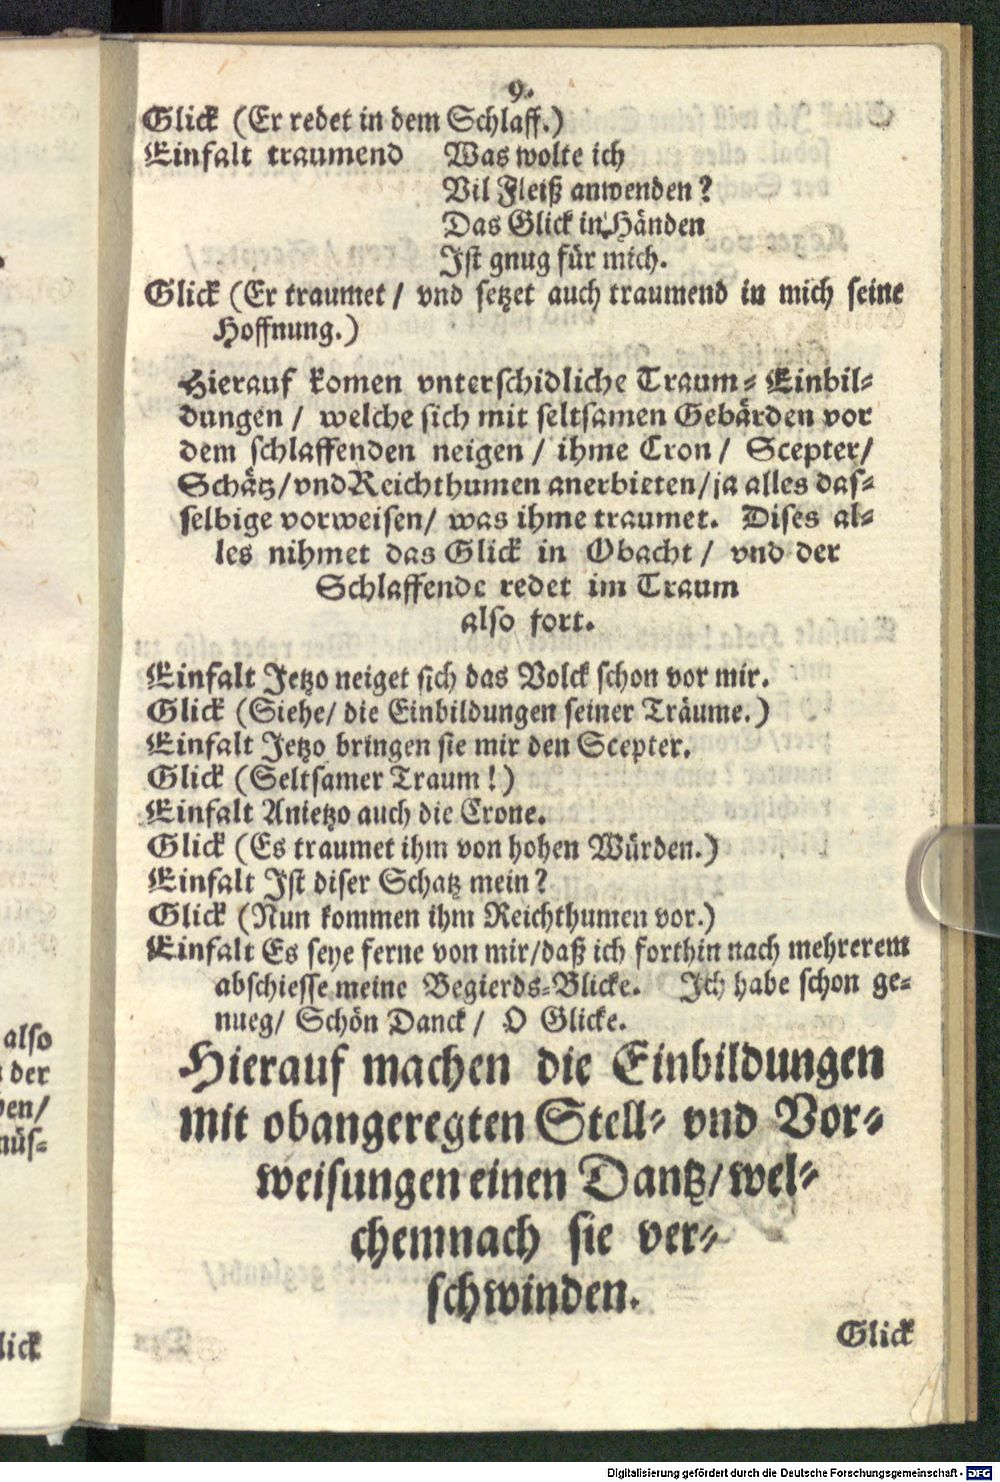 9.
Glick (Er redet in dem Schlaff.)
Einfalt traumend Was wolte ich
Vil Fleiß anwenden?
Das Glick in Händen
Ist gnug für mich.
Glick (Er traumet / vnd setzet auch traumend in mich seine
Hoffnung.)
Hierauf komen vnterschidliche Traum-Einbil-
dungen / welche sich mit seltsamen Gebärden vor
dem schlaffenden neigen / ihme Cron / Scepter/
Schätz/vnd Reichthumen anerbieten/ja alles das-
selbige vorweisen/ was ihme traumet. Dises al-
les nihmet das Glick in Obacht / vnd der
Schlaffende redet im Traum
also fort.
Einfalt Jetzo neiget sich das Volck schon vor mir.
Glick (Siehe/ die Einbildungen seiner Träume.)
Einfalt Jetzo bringen sie mir den Scepter.
Glick (Seltsamer Traum!)
Einfalt Anietzo auch die Crone.
Glick (Es traumet ihm von hohen Würden.)
Einfalt Ist diser Schatz mein?
Glick (Nun kommen ihm Reichthumen vor.)
Einfalt Es seye ferne von mir/daß ich forthin nach mehrerem
abschiesse meine Begierds-Blicke. Ich habe schon ge-
nueg/ Schön Danck / O Glicke.
Hierauf machen die Einbildungen
mit obangeregten Stell- vnd Vor-
weisungen einen Dantz/wel-
chemnach sie ver-
schwinden.
Glick
also
der
ben/
müs-
lick
Digitalisierung gefördert durch die Deutsche Forschungsgemeinschaft - DFG